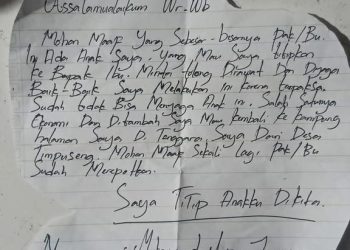 Assalamualaikum Wr-Wb
Mohon Maap Yang Sebesar-besarnya Pak/Bu.
Ini Ada Anak Saya. Yang Mau Saya titipkan
Ke Bapak Ibu. Minta tolong Dirawat Dan Dijaga
Baik-Baik Saya Melakukan Ini Karena terpaksa
Sudah tidak Bisa Menjaga Anak ini. Salah Satunya
Ekonomi Dan Ditambah Saya Mau Kembali Ke Kampung
Halaman Saya Di Tenggara. Saya Dari Desa
Limpuseng. Mohon Maap Sekali lagi Pak/Bu
Sudah Merepotkan.
Saya TiTip Anakku Dikita.